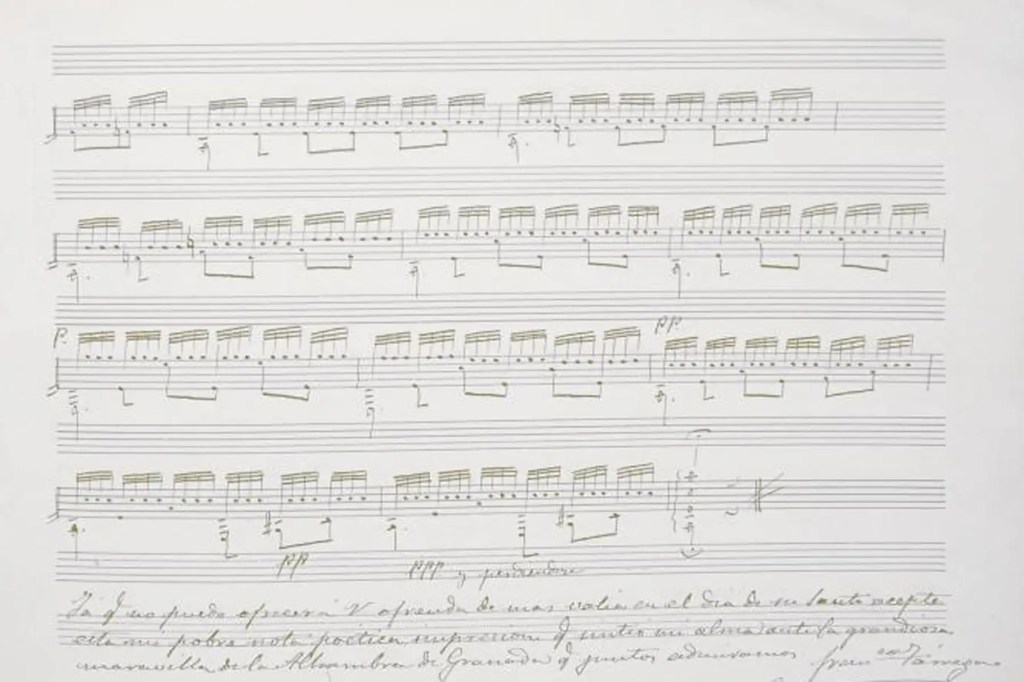 p.
pp.
pp
ppp. y perdendose
Ya q no puedo ofrecer á V ofrenda de mas valia en el dia de su santo acepte
esta mi pobre nota poética, impresion q sintió mi alma ante la grandiosa
maravilla de la Alhambra de Granada q juntos admiramos Fran^co Tárrega